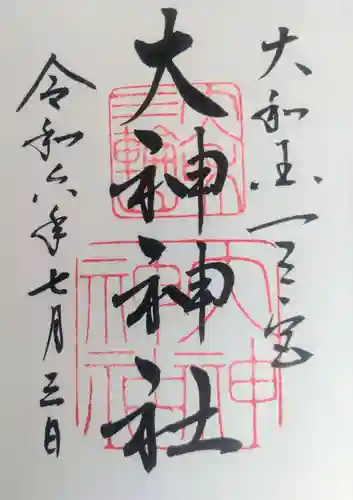 大和国一之宮
大神神社
令和六年七月三日
大神神社